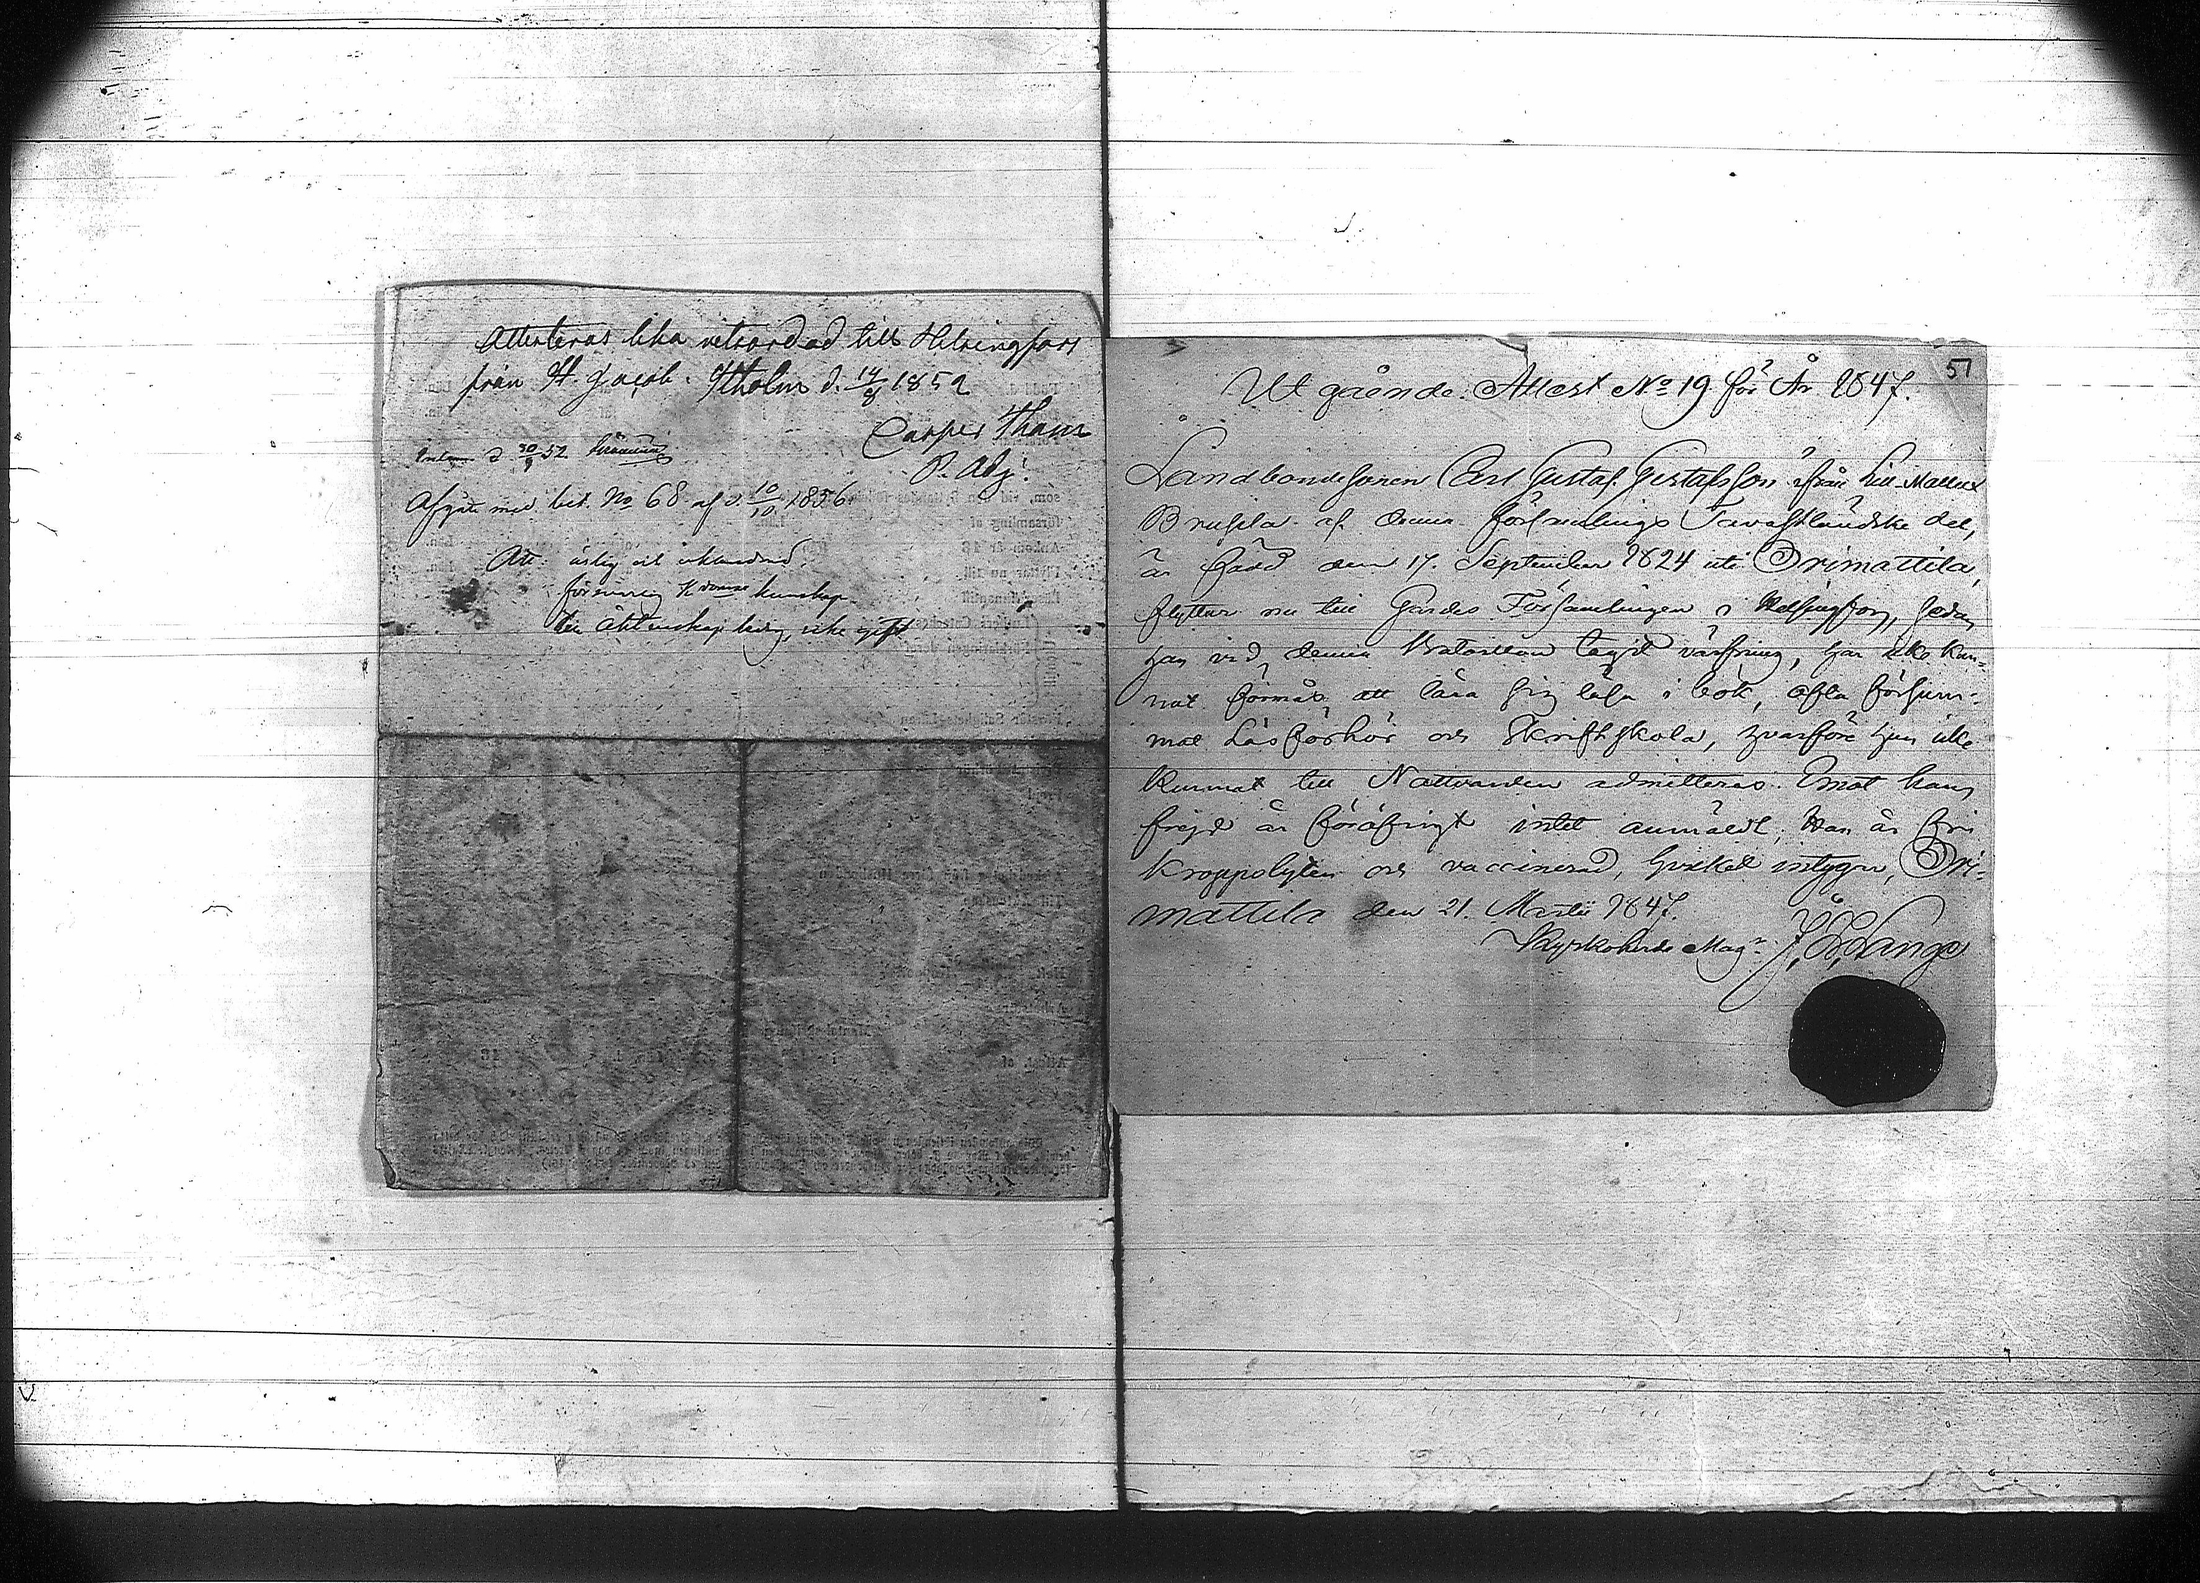 Attesteras lika vitsordad till Helsingfors
från St. Jacob. Stholm d. 14/8 1852
Casper Tham
P. Adj.
d 30/9 52
Afgått med bet. No 68 af d. 10/10 1856.
Att: ärlig
försvarlig kunskap
till äktenskap ledig, icke gift
51
Utgående Attest No 19 för År 1847.
Landbondesonen Carl Gustaf Gustafsson ifrån Lill-Mattas
af denna Församlings Tavastländske del,
är född den 17. September 1824 uti Orimattila,
flyttar nu till Gardes Församlingen i Helsingfors, sedan
han vid denna Bataillon tagit värfning, har icke kun-
nat förmås att lära sig läsa i bok, ofta försum-
mat Läsförhör och Skriftskola, hvarföre han icke
kunnat till Nattvarden admitteras. Emot hans
frejd är föröfrigt intet anmäldt. Han är fri
kroppslyten och vaccinerad, hvilket intygar, Ori-
mattila den 21. Martii 1847.
Kyrkoherde Mag:r